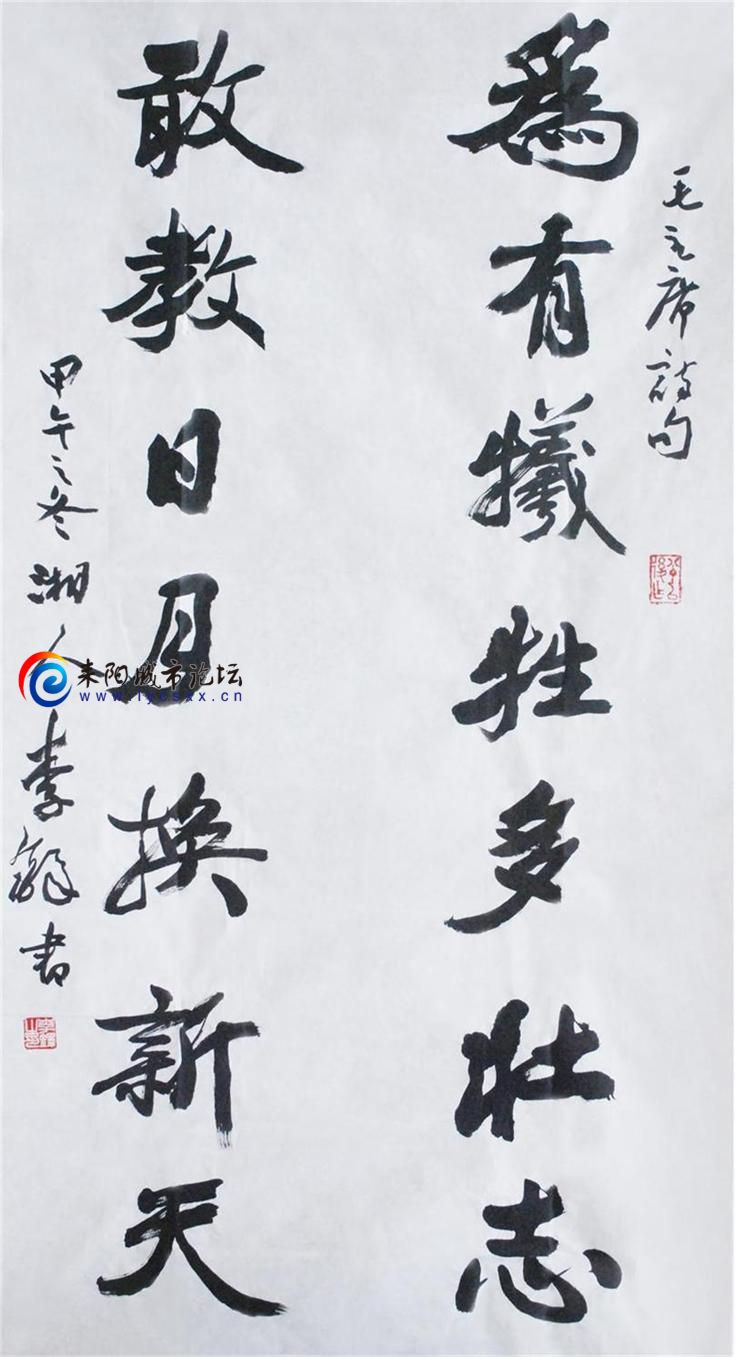 毛主席詩句
為有犧牲多壯志
敢教日月換新天
甲午之冬湘人李
書
耒阳城市论坛
www.lycsxx.cn